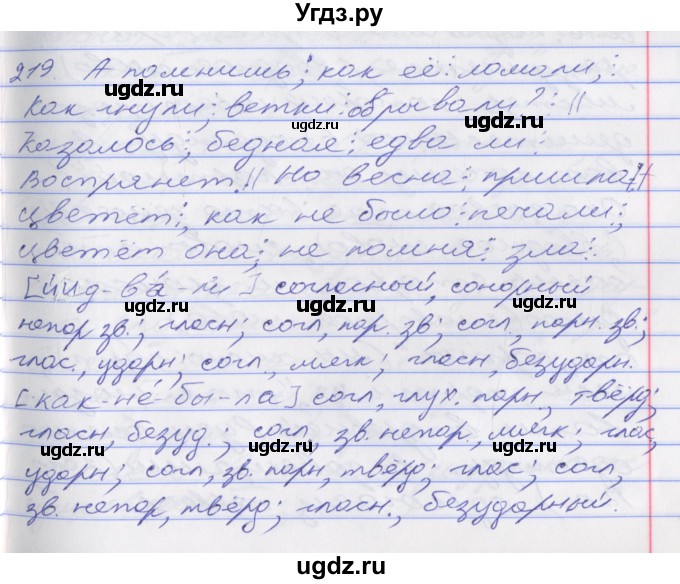 Угдз.ру
219. А помнишь; как её: ломали,:
Как гнули; ветки: обрывали?: ||
Казалось; бедная; едва ли:
Воспрянет. || Но весна: пришла: ||
цветёт; как не было: печали;
цветёт она; не помня: зла:
[йид-ва́-ли] согласный, сонорный
непар зв.; гласн; согл, пар. зв; согл, парн. зв.;
глас., ударн; согл., мягк; гласн, безударн.
[как-не́-бы-ла] согл, глух. парн, твёрд;
гласн, безуд.; согл, зв. непар., мягк; глас,
ударн; согл, зв. парн, твёрд; глас; согл,
зв. непар, твёрд; гласн, безударный.
uгдz.ru